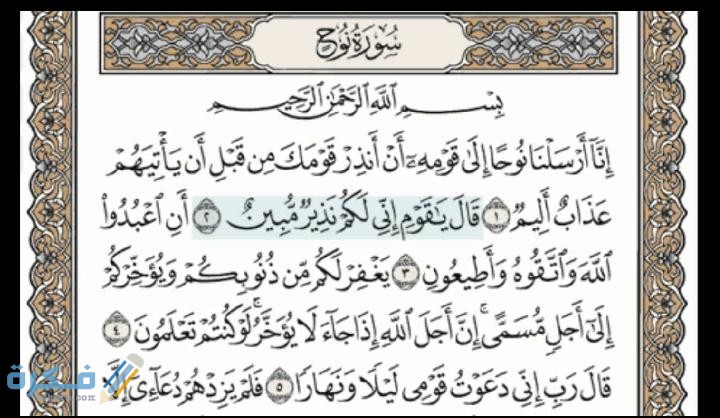 سُورَةُ نُوحٍ
بِسْمِ اللَّهِ الرَّحْمَٰنِ الرَّحِيمِ
إِنَّآ أَرْسَلْنَا نُوحًا إِلَىٰ قَوْمِهِۦٓ أَنْ أَنذِرْ قَوْمَكَ مِن قَبْلِ أَن يَأْتِيَهُمْ
عَذَابٌ أَلِيمٌ ١ قَالَ يَٰقَوْمِ إِنِّى لَكُمْ نَذِيرٌ مُّبِينٌ ٢ أَنِ ٱعْبُدُوا۟
ٱللَّهَ وَٱتَّقُوهُ وَأَطِيعُونِ ٣ يَغْفِرْ لَكُم مِّن ذُنُوبِكُمْ وَيُؤَخِّرْكُمْ
إِلَىٰٓ أَجَلٍ مُّسَمًّى ۚ إِنَّ أَجَلَ ٱللَّهِ إِذَا جَآءَ لَا يُؤَخَّرُ ۖ لَوْ كُنتُمْ تَعْلَمُونَ ٤
قَالَ رَبِّ إِنِّى دَعَوْتُ قَوْمِى لَيْلًا وَنَهَارًا ٥ فَلَمْ يَزِدْهُمْ دُعَآءِىٓ إِلَّا
فكرة
box